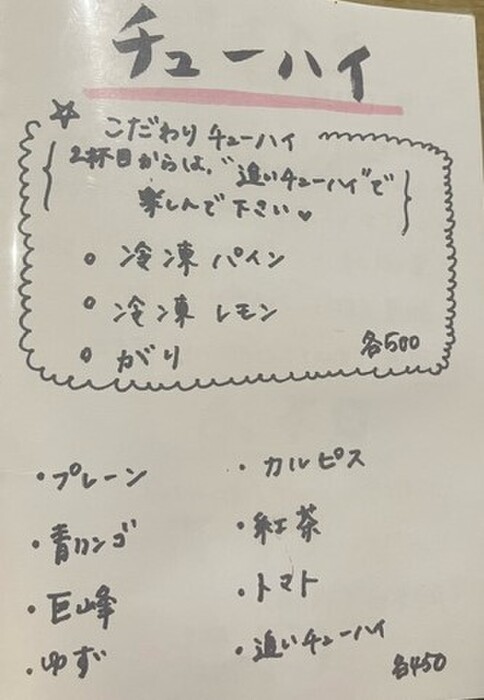 チューハイ
☆ こだわりチューハイ
2杯目からは、"追いチューハイ"で
楽しんで下さい♥
○ 冷凍パイン
○ 冷凍レモン
○ がり
各500
・プレーン
・青リンゴ
・巨峰
・ゆず
・カルピス
・紅茶
・トマト
・追いチューハイ
各450